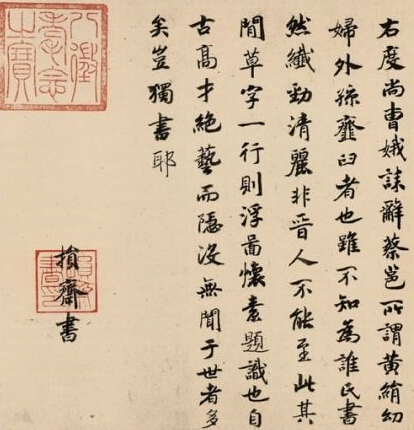 右度尚曹娥誄辭蔡邕所謂黃絹幼
婦外孫虀臼者也雖不知為誰氏書
然纖勁清麗非晉人不能至此其
間草字一行則浮啚懷素題識也自
古高才絕藝而隱沒無聞于世者多
矣豈獨書耶
損齋書
八徵耄念之寶